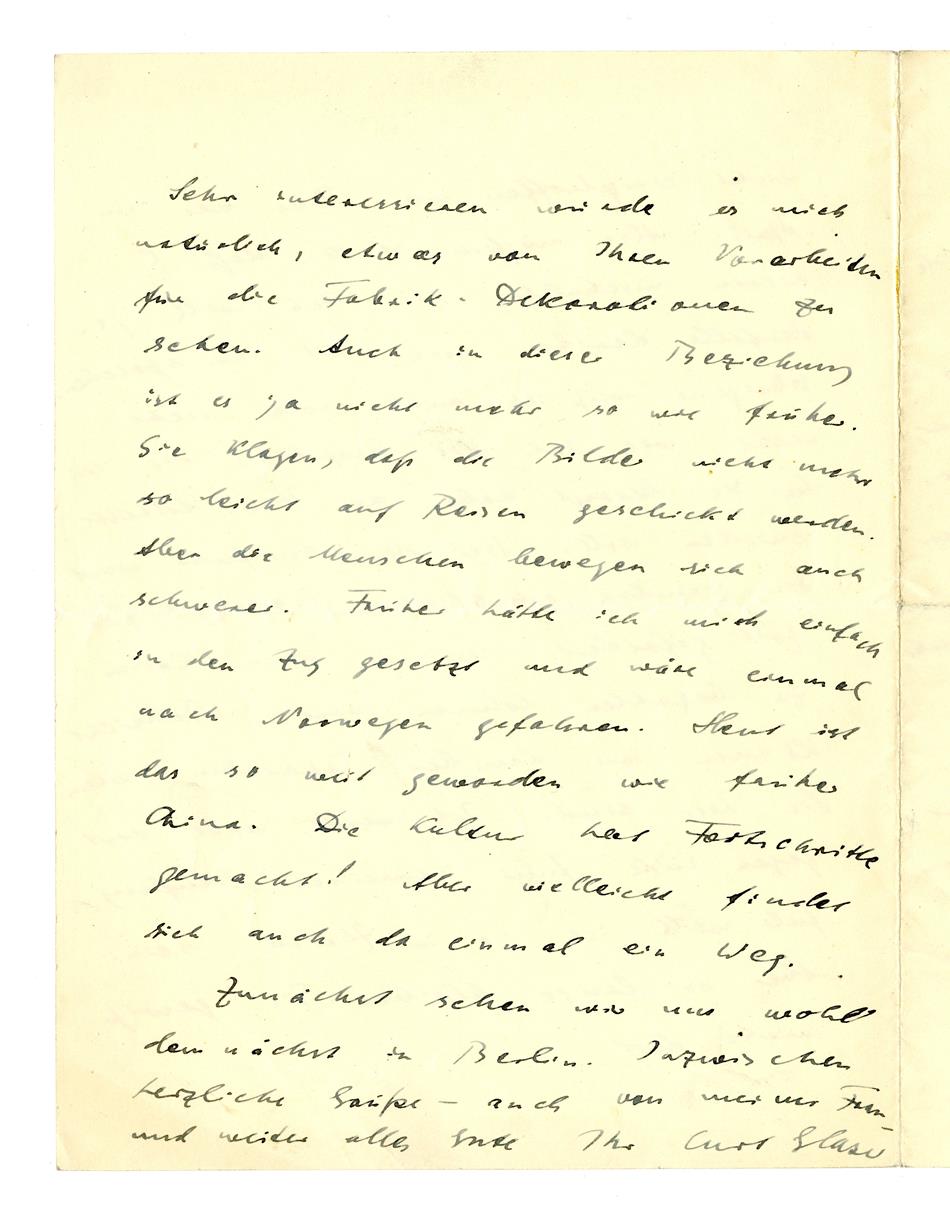 Sehr interessieren würde es mich
natürlich, etwas von Ihren Vorarbeiten
für die Fabrik-Dekorationen zu
sehen. Auch in dieser Beziehung
ist es ja nicht mehr so wie früher.
Sie klagen, daß die Bilder nicht mehr
so leicht auf Reisen geschickt werden.
Aber die Menschen bewegen sich auch
schwerer. Früher hätte ich mich einfach
in den Zug gesetzt und wäre einmal
nach Norwegen gefahren. Heut ist
das so weit geworden wie früher
China. Die Kultur hat Fortschritte
gemacht! Aber vielleicht findet
sich auch da einmal ein Weg.
Zunächst sehen wir uns wohl
demnächst in Berlin. Inzwischen
herzliche Grüße – auch von meiner Frau –
und weiter alles Gute Ihr Curt Glaser